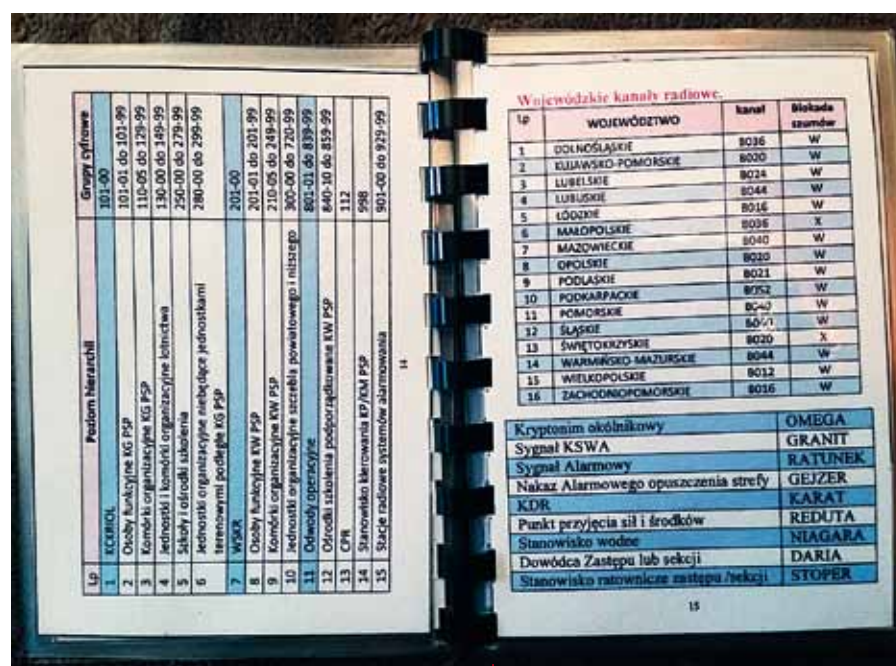 Lp Poziom hierarchii Grupy cyfrowe
1 KCKRIOL 101-00
2 Osoby funkcyjne KG PSP 101-01 do 101-99
3 Komórki organizacyjne KG PSP 110-05 do 129-99
4 Jednostki i komórki organizacyjne lotnictwa 130-00 do 149-99
5 Szkoły i ośrodki szkolenia 250-00 do 279-99
6 Jednostki organizacyjne niebędące jednostkami 280-00 do 299-99
terenowymi podległe KG PSP
7 WSKR 201-00
8 Osoby funkcyjne KW PSP 201-01 do 201-99
9 Komórki organizacyjne KW PSP 210-05 do 249-99
10 Jednostki organizacyjne szczebla powiatowego i niższego 300-00 do 720-99
11 Odwody operacyjne 801-01 do 839-99
12 Ośrodki szkolenia podporządkowane KW PSP 840-10 do 859-99
13 CPR 112
14 Stanowisko kierowania KP/KM PSP 998
15 Stacje radiowe systemów alarmowania 901-00 do 929-99
14
Wojewódzkie kanały radiowe.
Lp WOJEWÓDZTWO kanał Blokada
szumów
1 DOLNOŚLĄSKIE B036 W
2 KUJAWSKO-POMORSKIE B020 W
3 LUBELSKIE B024 W
4 LUBUSKIE B044 W
5 ŁÓDZKIE B016 W
6 MAŁOPOLSKIE B036 X
7 MAZOWIECKIE B040 W
8 OPOLSKIE B020 W
9 PODLASKIE B021 W
10 PODKARPACKIE B052 W
11 POMORSKIE B040 W
12 ŚLĄSKIE W
13 ŚWIĘTOKRZYSKIE B020 X
14 WARMIŃSKO-MAZURSKIE B044 W
15 WIELKOPOLSKIE B012 W
16 ZACHODNIOPOMORSKIE B016 W
Kryptonim okólnikowy OMEGA
Sygnał KSWA GRANIT
Sygnał Alarmowy RATUNEK
Nakaz Alarmowego opuszczenia strefy GEJZER
KDR KARAT
Punkt przyjęcia sił i środków REDUTA
Stanowisko wodne NIAGARA
Dowódca Zastępu lub sekcji DARIA
Stanowisko ratownicze zastępu /sekcji STOPER
15